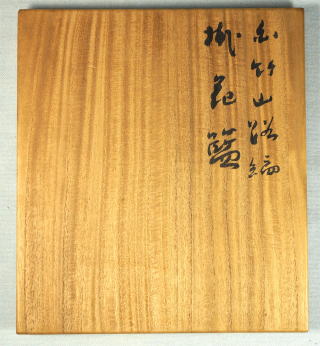 白竹山路編
掛花籃